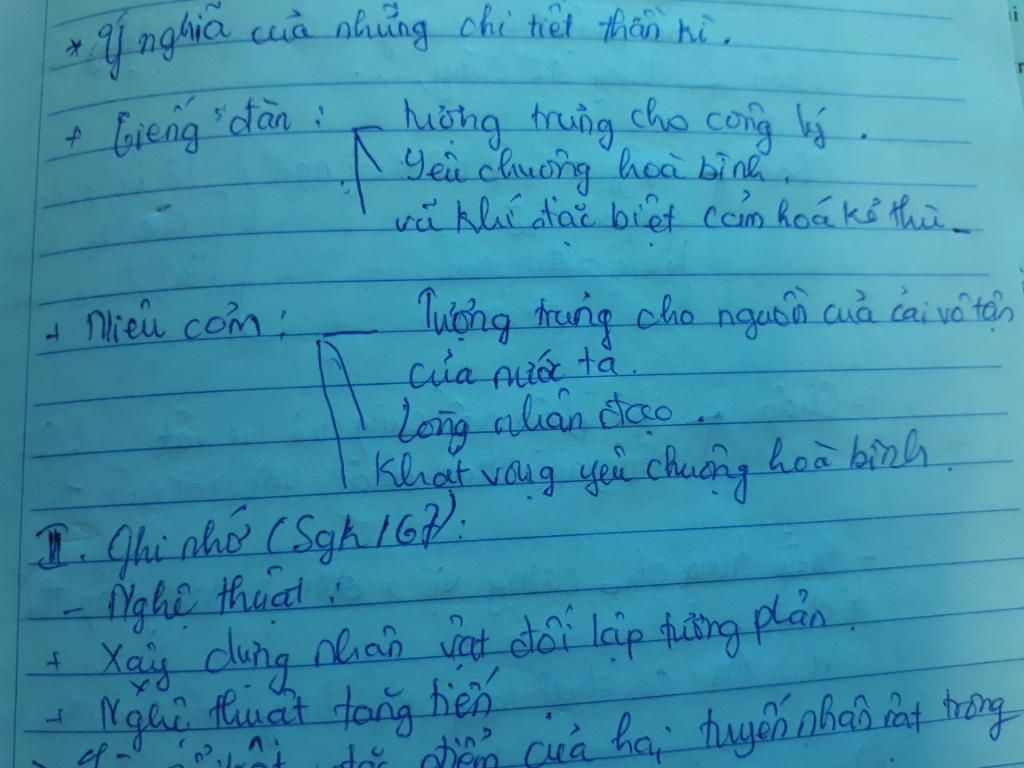 * Ý nghĩa của những chi tiết thần kì.
+ Tiếng đàn : tượng trưng cho công lý.
yêu chuộng hoà bình.
vũ khí đặc biệt cảm hoá kẻ thù
+ Niêu cơm : Tượng trưng cho nguồn của cải vô tận
của nước ta.
Lòng nhân đạo.
Khát vọng yêu chuộng hoà bình.
II. Ghi nhớ (Sgk/67):
- Nghệ thuật :
+ Xây dựng nhân vật đối lập tương phản.
+ Nghệ thuật tăng tiến
đặc điểm của hai tuyến nhân vật trong